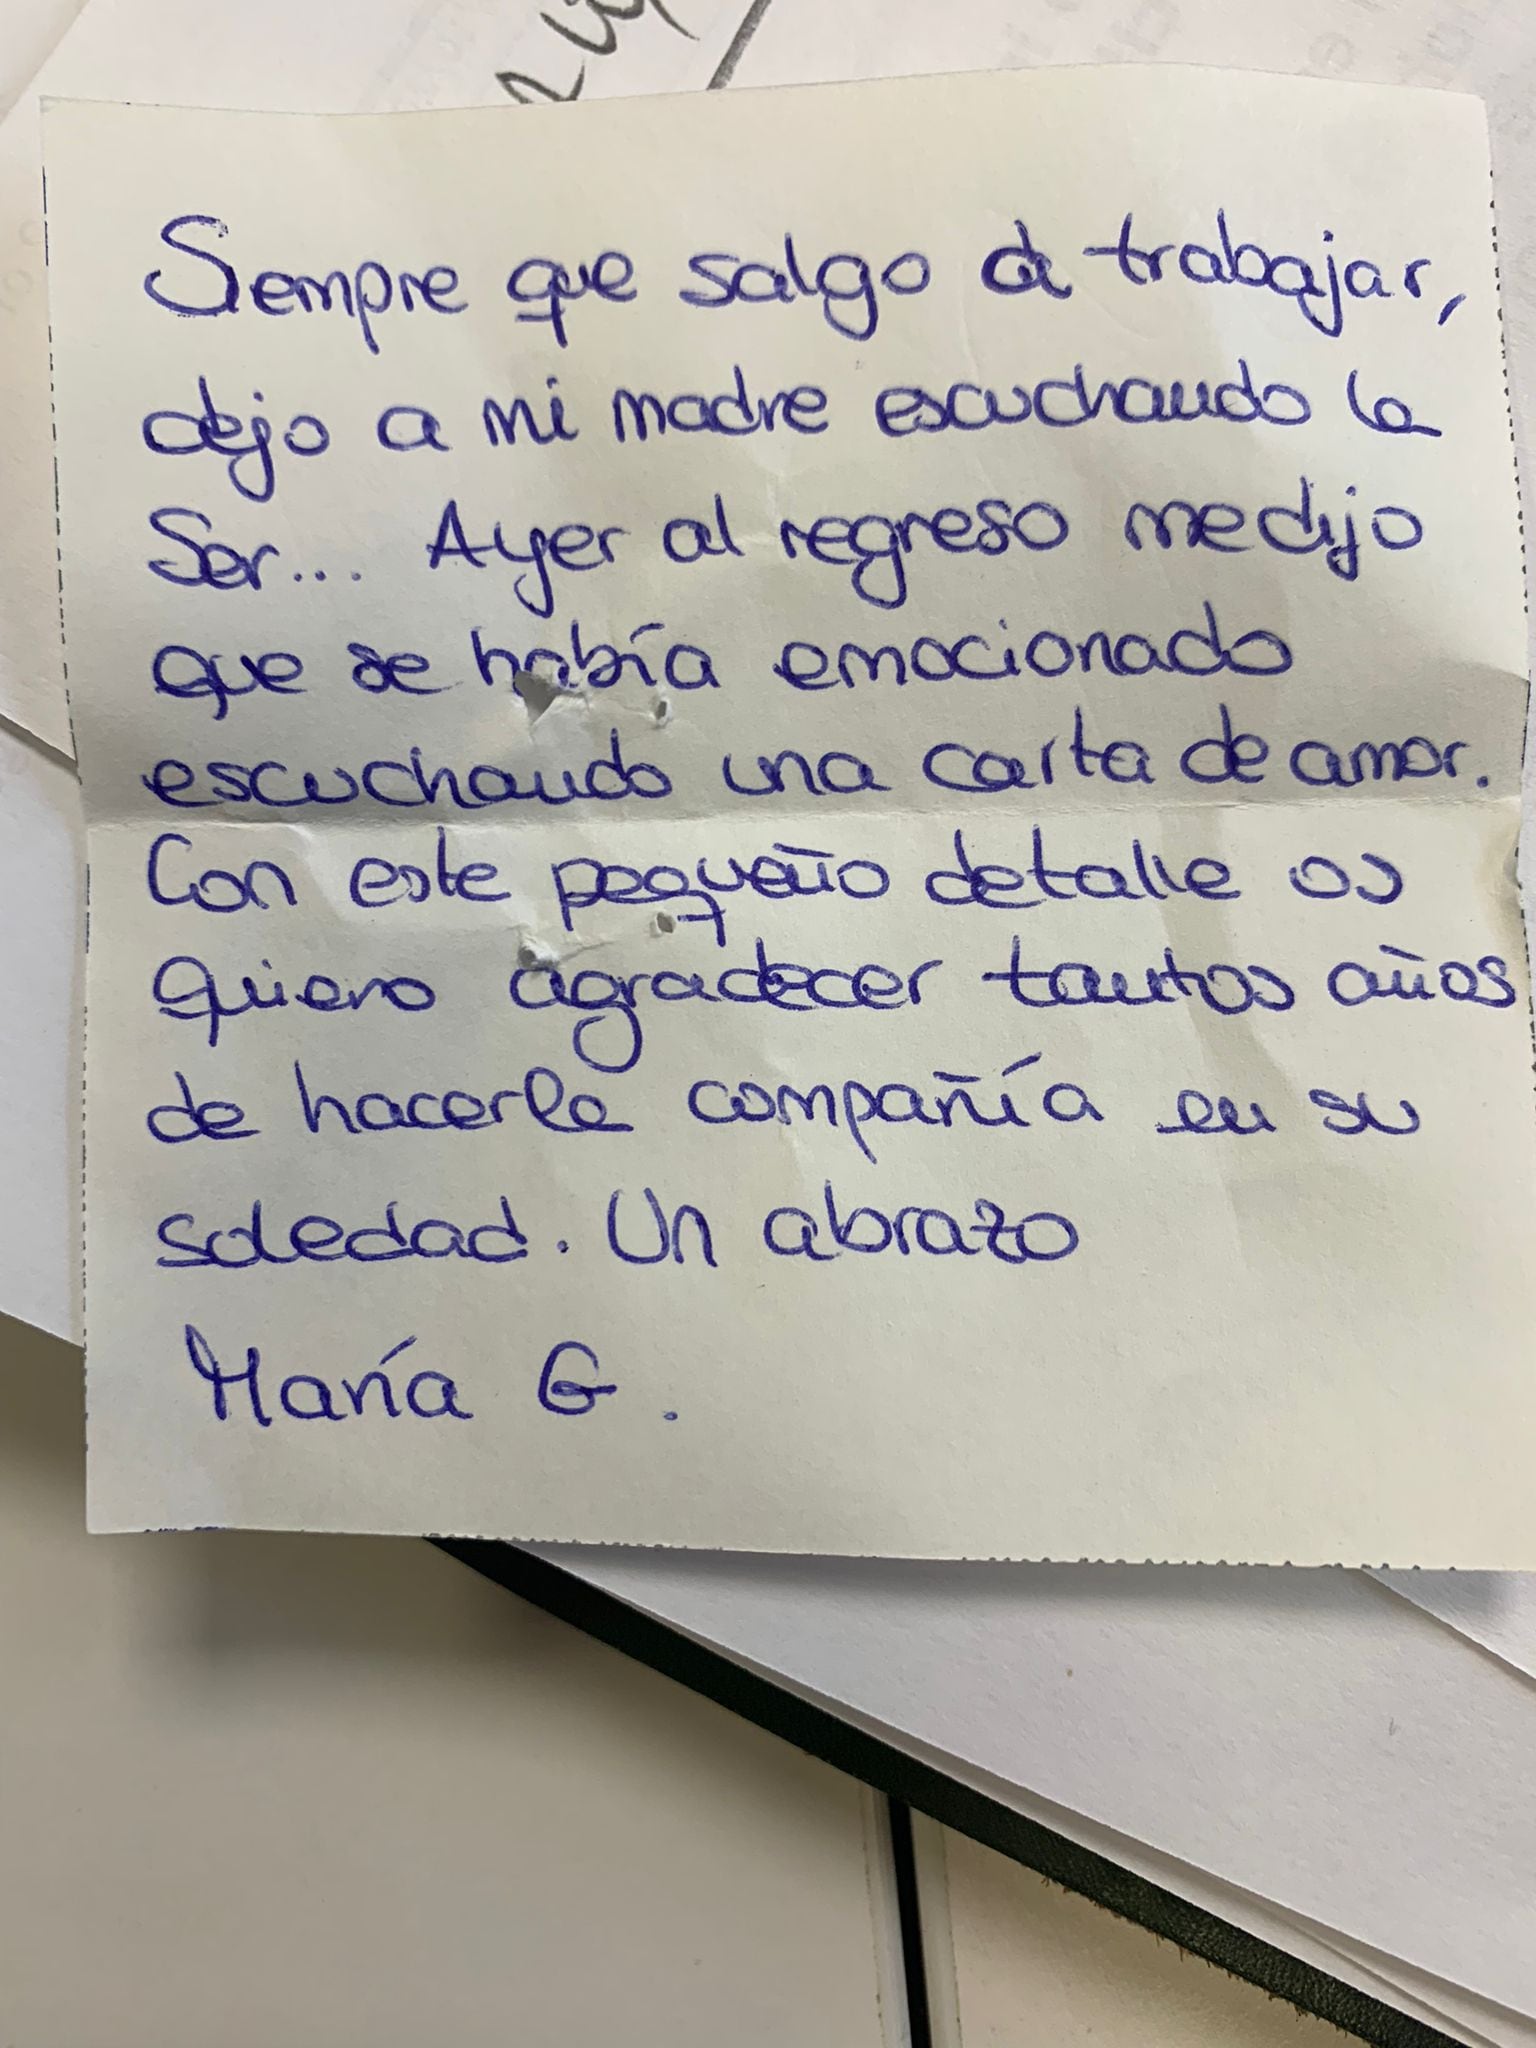 Siempre que salgo a trabajar,
dejo a mi madre escuchando la
Ser... Ayer al regreso me dijo
que se había emocionado
escuchando una carta de amor.
Con este pequeño detalle os
quiero agradecer tantos años
de hacerle compañía en su
soledad. Un abrazo
María G.